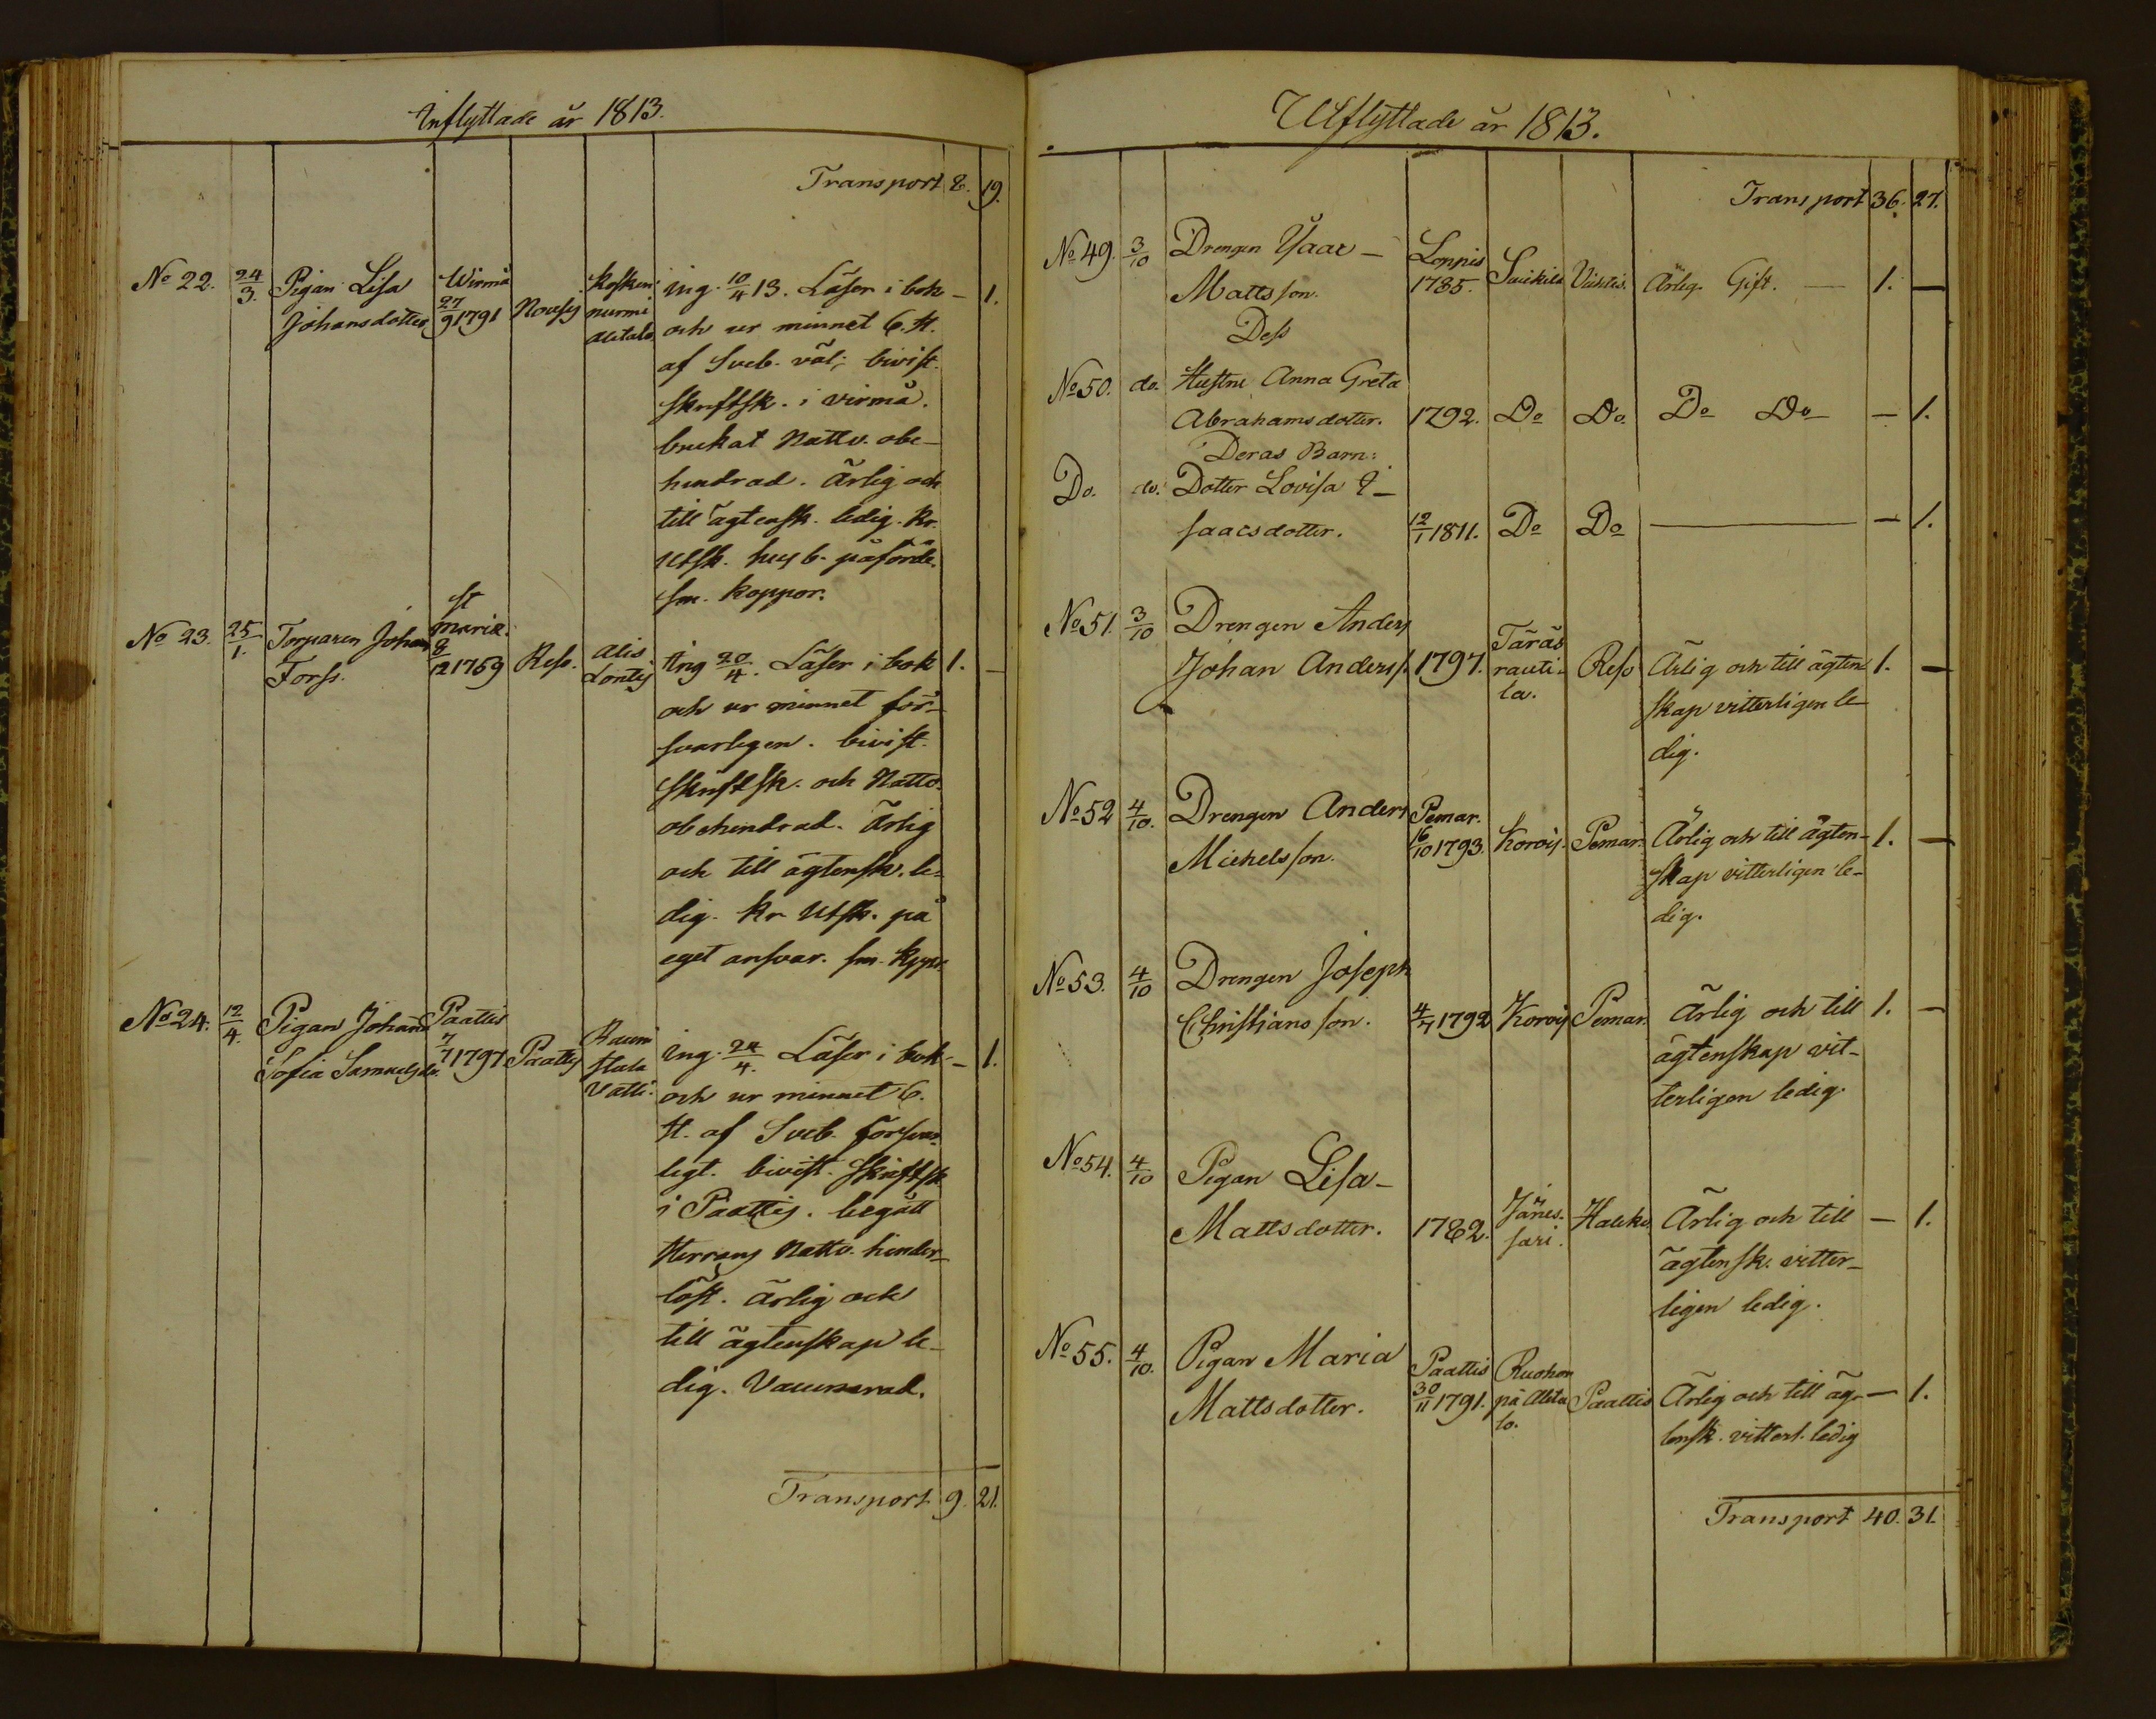 Inflyttade år 1813.
Transport 8. 19.
No 22. 24/3. Pigan Lisa Johansdotter Wirmå 27/9 1791 Nousis Koskennurmi Alitalo
ing. 10/4 13. Läser i bok - 1.
och ur minnet 6. st.
af Sveb. väl; bivist.
skriftsk. i virmå.
brukat Nattv. obe-
hindrad. Ärlig och
till ägtensk. ledig. Kr.
Utsk. husb. påförde.
sm. koppor.
No 23. 25/1. Torparen Johan Forss. St Marie. 8/12 1769 Reso. Alis Lontis
Ing 20/4. Läser i bok 1. -
och ur minnet för-
svarligen. bivist.
skriftsk. och Nattv.
obehindrad. Ärlig
och till ägtensk. le-
dig. Kr Utsk. på
eget ansvar. sm. kppr.
No 24. 12/4. Pigan Johanna Sofia Samuelsdo. Paattis 7/7 1797 Paattis Raunistula Vatti.
ing. 24/4. Läser i bok - 1.
och ur minnet 6.
st. af Sveb. försvar-
ligt. bivist. skriftsk
i Paattis. begått
Herrans Nattv. hinder-
löst. ärlig och
till ägtenskap le-
dig. Vaccinerad.
Transport 9. 21.
Utflyttade år 1813.
Transport 36. 27.
No 49. 3/10 Drengen Isaac - Loppis
Mattsson. 1785. Suikila Vichtis. Ärlig. Gift. - 1. -
Dess
No 50. do. Hustru Anna Greta
Abrahamsdotter. 1792. Do Do. Do Do - 1.
Deras Barn:
Do. do. Dotter Lovisa I-
saacsdotter. 12/1 1811. Do Do - 1.
No 51. 3/10 Drengen Anders
Johan Anderss. 1797. Täräsrautila. Reso Ärlig och till ägten- 1. -
skap vitterligen le-
dig.
No 52 4/10. Drengen Anders Pemar.
Michelsson. 16/10 1793. Korois. Pemar. Ärlig och till ägten- 1. -
skap vitterligen le-
dig.
No 53. 4/10 Drengen Joseph
Christjansson. 4/7 1792 Korois Pemar. Ärlig och till 1. -
ägtenskap vit-
terligen ledig.
No 54. 4/10 Pigan Lisa-
Mattsdotter. 1782. Jänessari. Haliko. Ärlig och till - 1.
ägtensk. vitter-
ligen ledig.
No 55. 4/10. Pigan Maria Paattis Ruohon
Mattsdotter. 30/11 1791. pä Alitalo. Paattis Ärlig och till äg- - 1.
tensk. vitterl. ledig
Transport 40. 31.